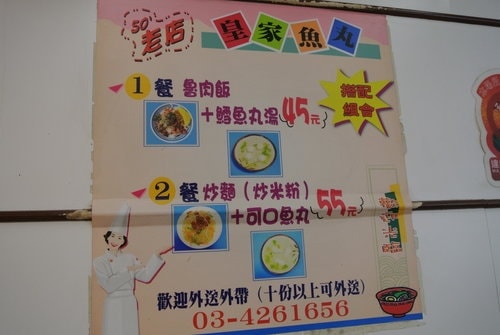 50
老店
皇家魚丸
1餐 魯肉飯
+鱈魚丸湯 45元
搭配
組合
2餐 炒麵（炒米粉）
+可口魚丸 55元
歡迎外送外帶（十份以上可外送）
03-4261656